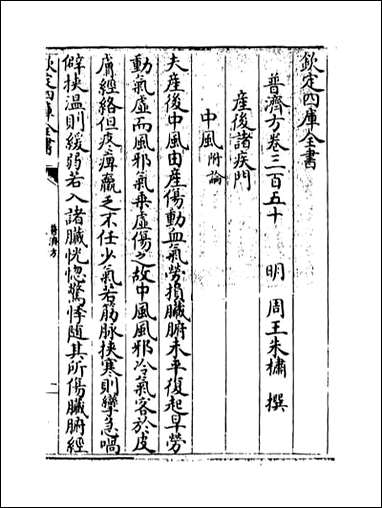 欽定四庫全書
普濟方卷三百五十　明　周王朱橚　撰
産後諸疾門
中風附論
夫産後中風由産傷動血氣勞損臟腑未平復起早勞
動氣虛而風邪氣乘虛傷之故中風風邪冷氣客於皮
膚經絡但疼痹羸乏不任少氣若筋脉挾寒則攣急喎
僻挾温則緩弱若入諸臟恍惚驚悸隨其所傷臟腑經
欽定四庫全書
普濟方